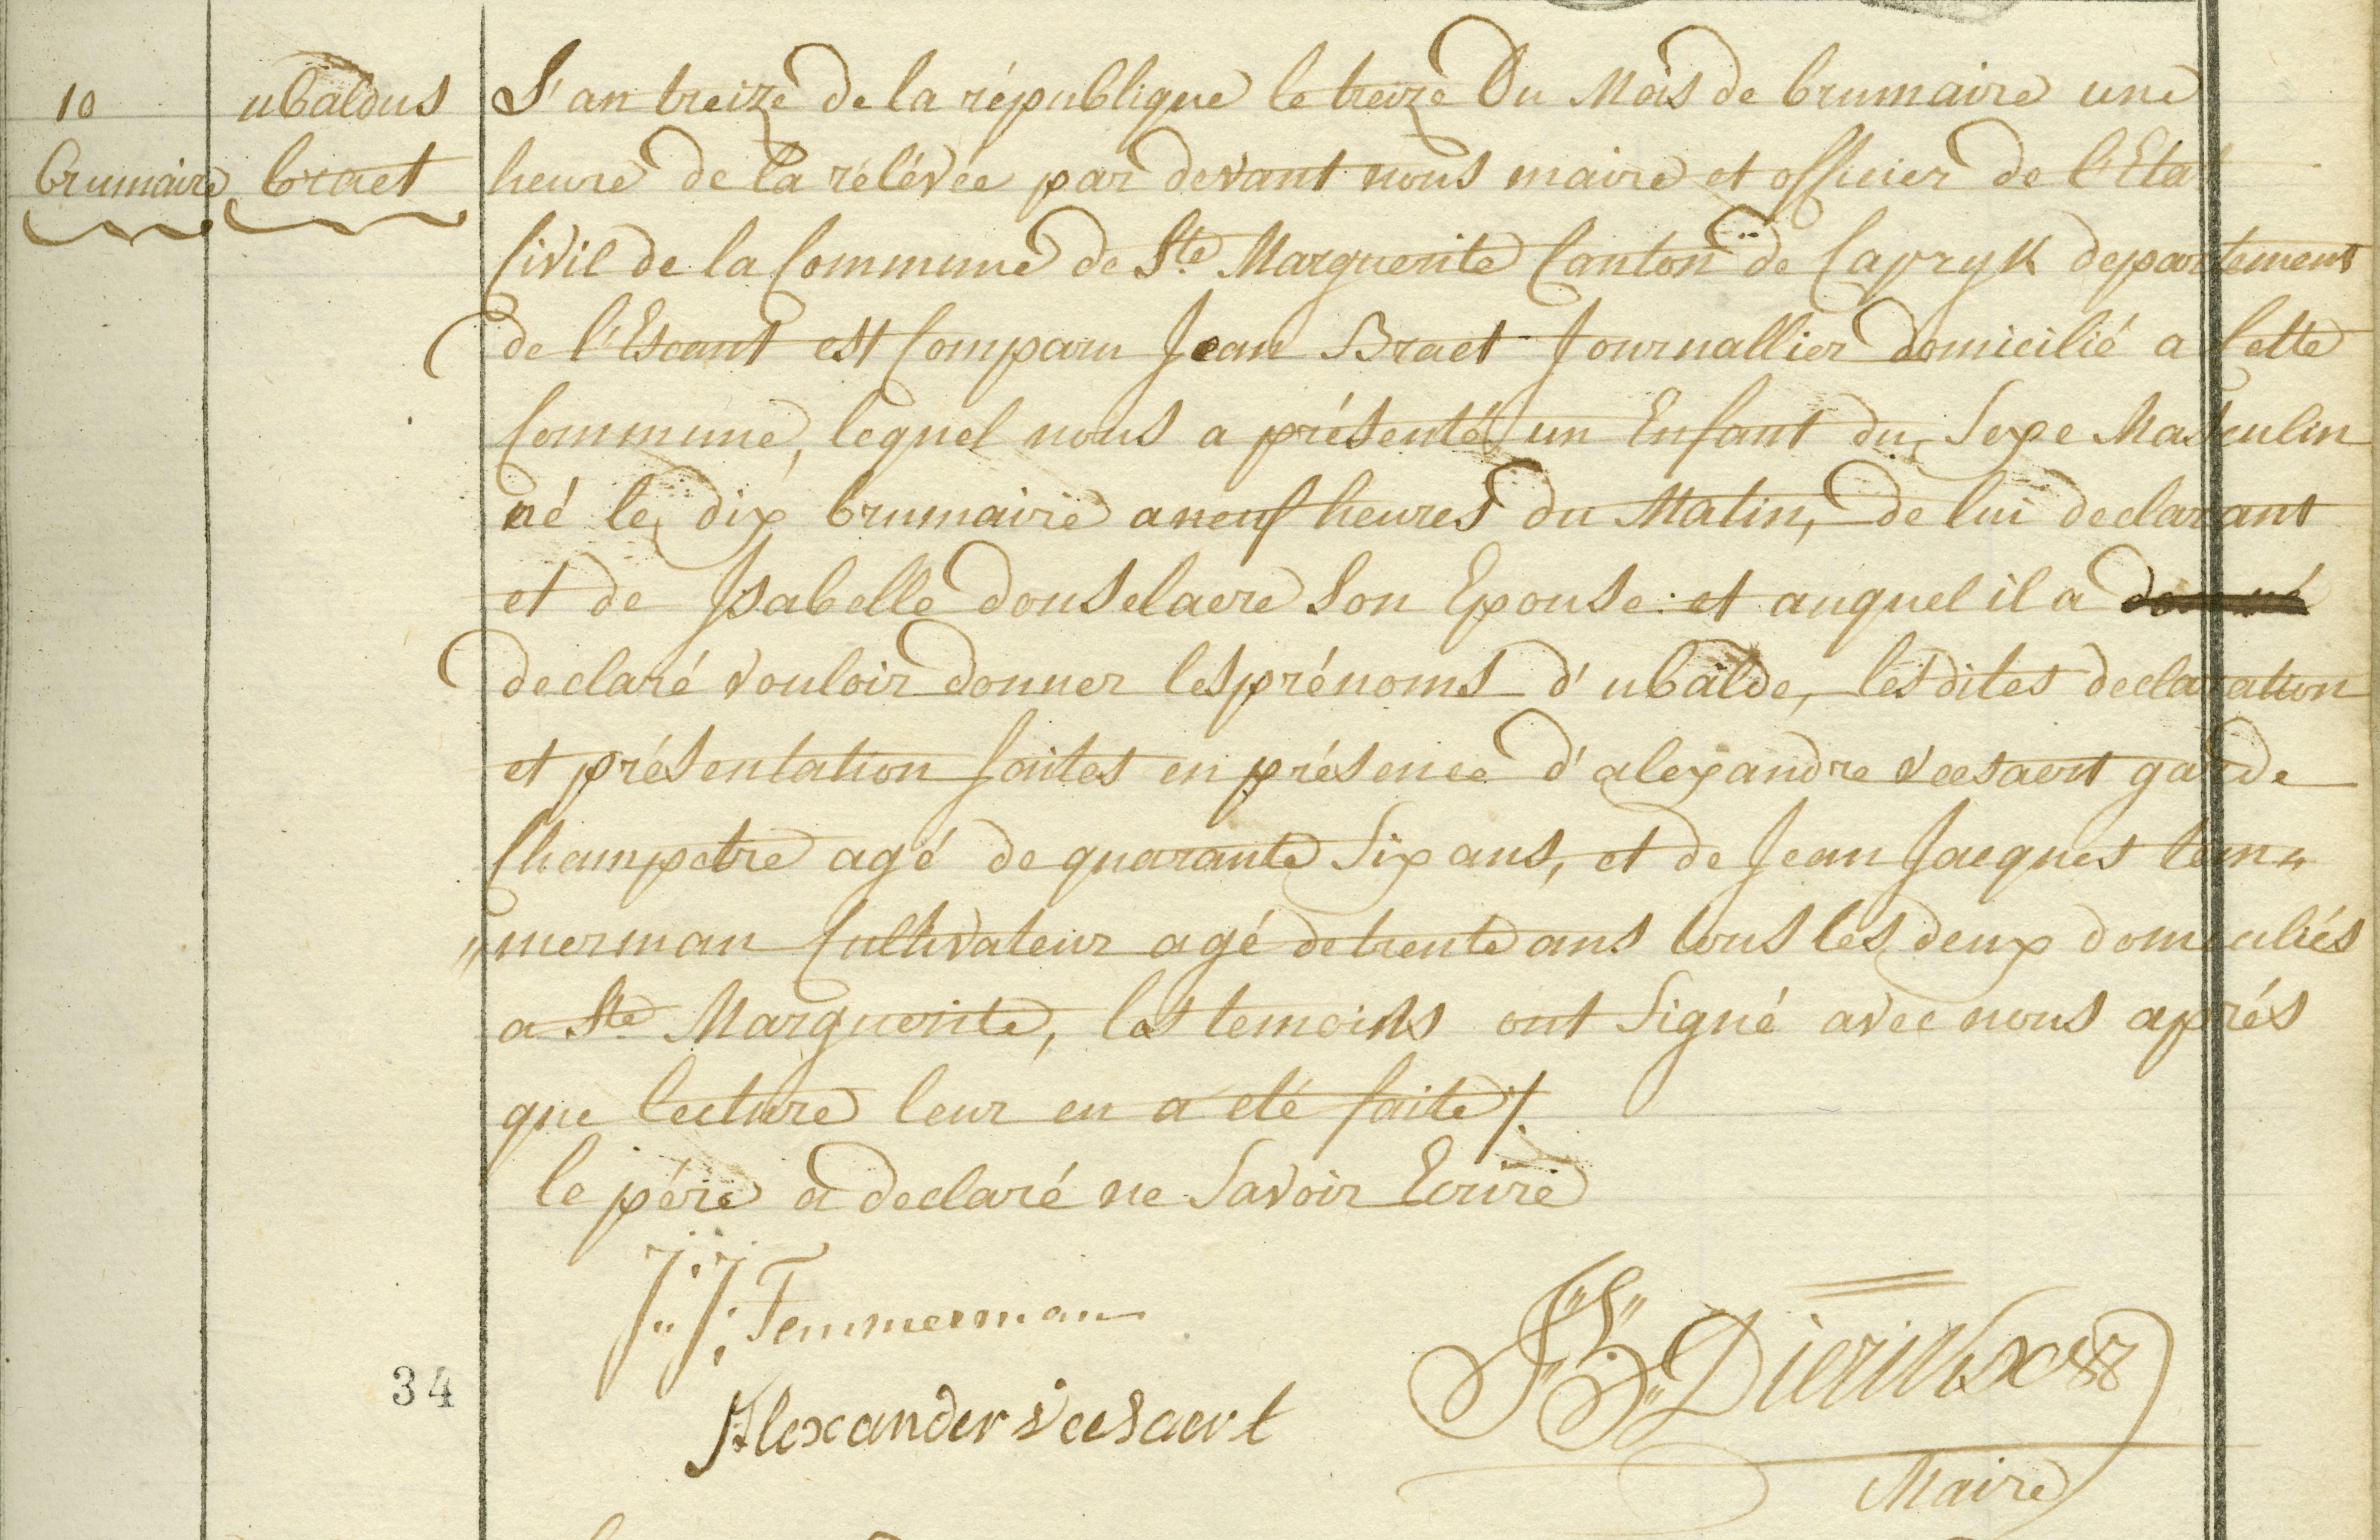 10
brumaire
ubaldus
braet
L'an treize de la république le treize Du Mois de brumaire une
heure de la rélévée par devant nous maire et officier de l'Etat
Civil de la Commune de Ste Marguerite Canton de Capryk departement
de l'Escaut est Comparu Jean Braet Journallier domicilié a Cette
Commune, lequel nous a présenté un Enfant du Sexe Masculin
né le dix brumaire a neuf heures du Matin, de lui declarant
et de Isabelle donselaere Son Epouse et auquel il a donné
declaré vouloir donner les prénoms d'ubalde, les dites declaration
et présentation faites en présence d'alexandre veesaert garde
Champetre agé de quarante Six ans, et de Jean Jacques tem„
„merman Cultivateur agé de trente ans tous les deux domiciliés
a Ste Marguerite, les temoins ont Signé avec nous aprés
que lecture leur en a eté faite /.
le pére a declaré ne Savoir Ecrire
J: J: Temmerman
34
Alexander veesaert
Dierickx
Maire